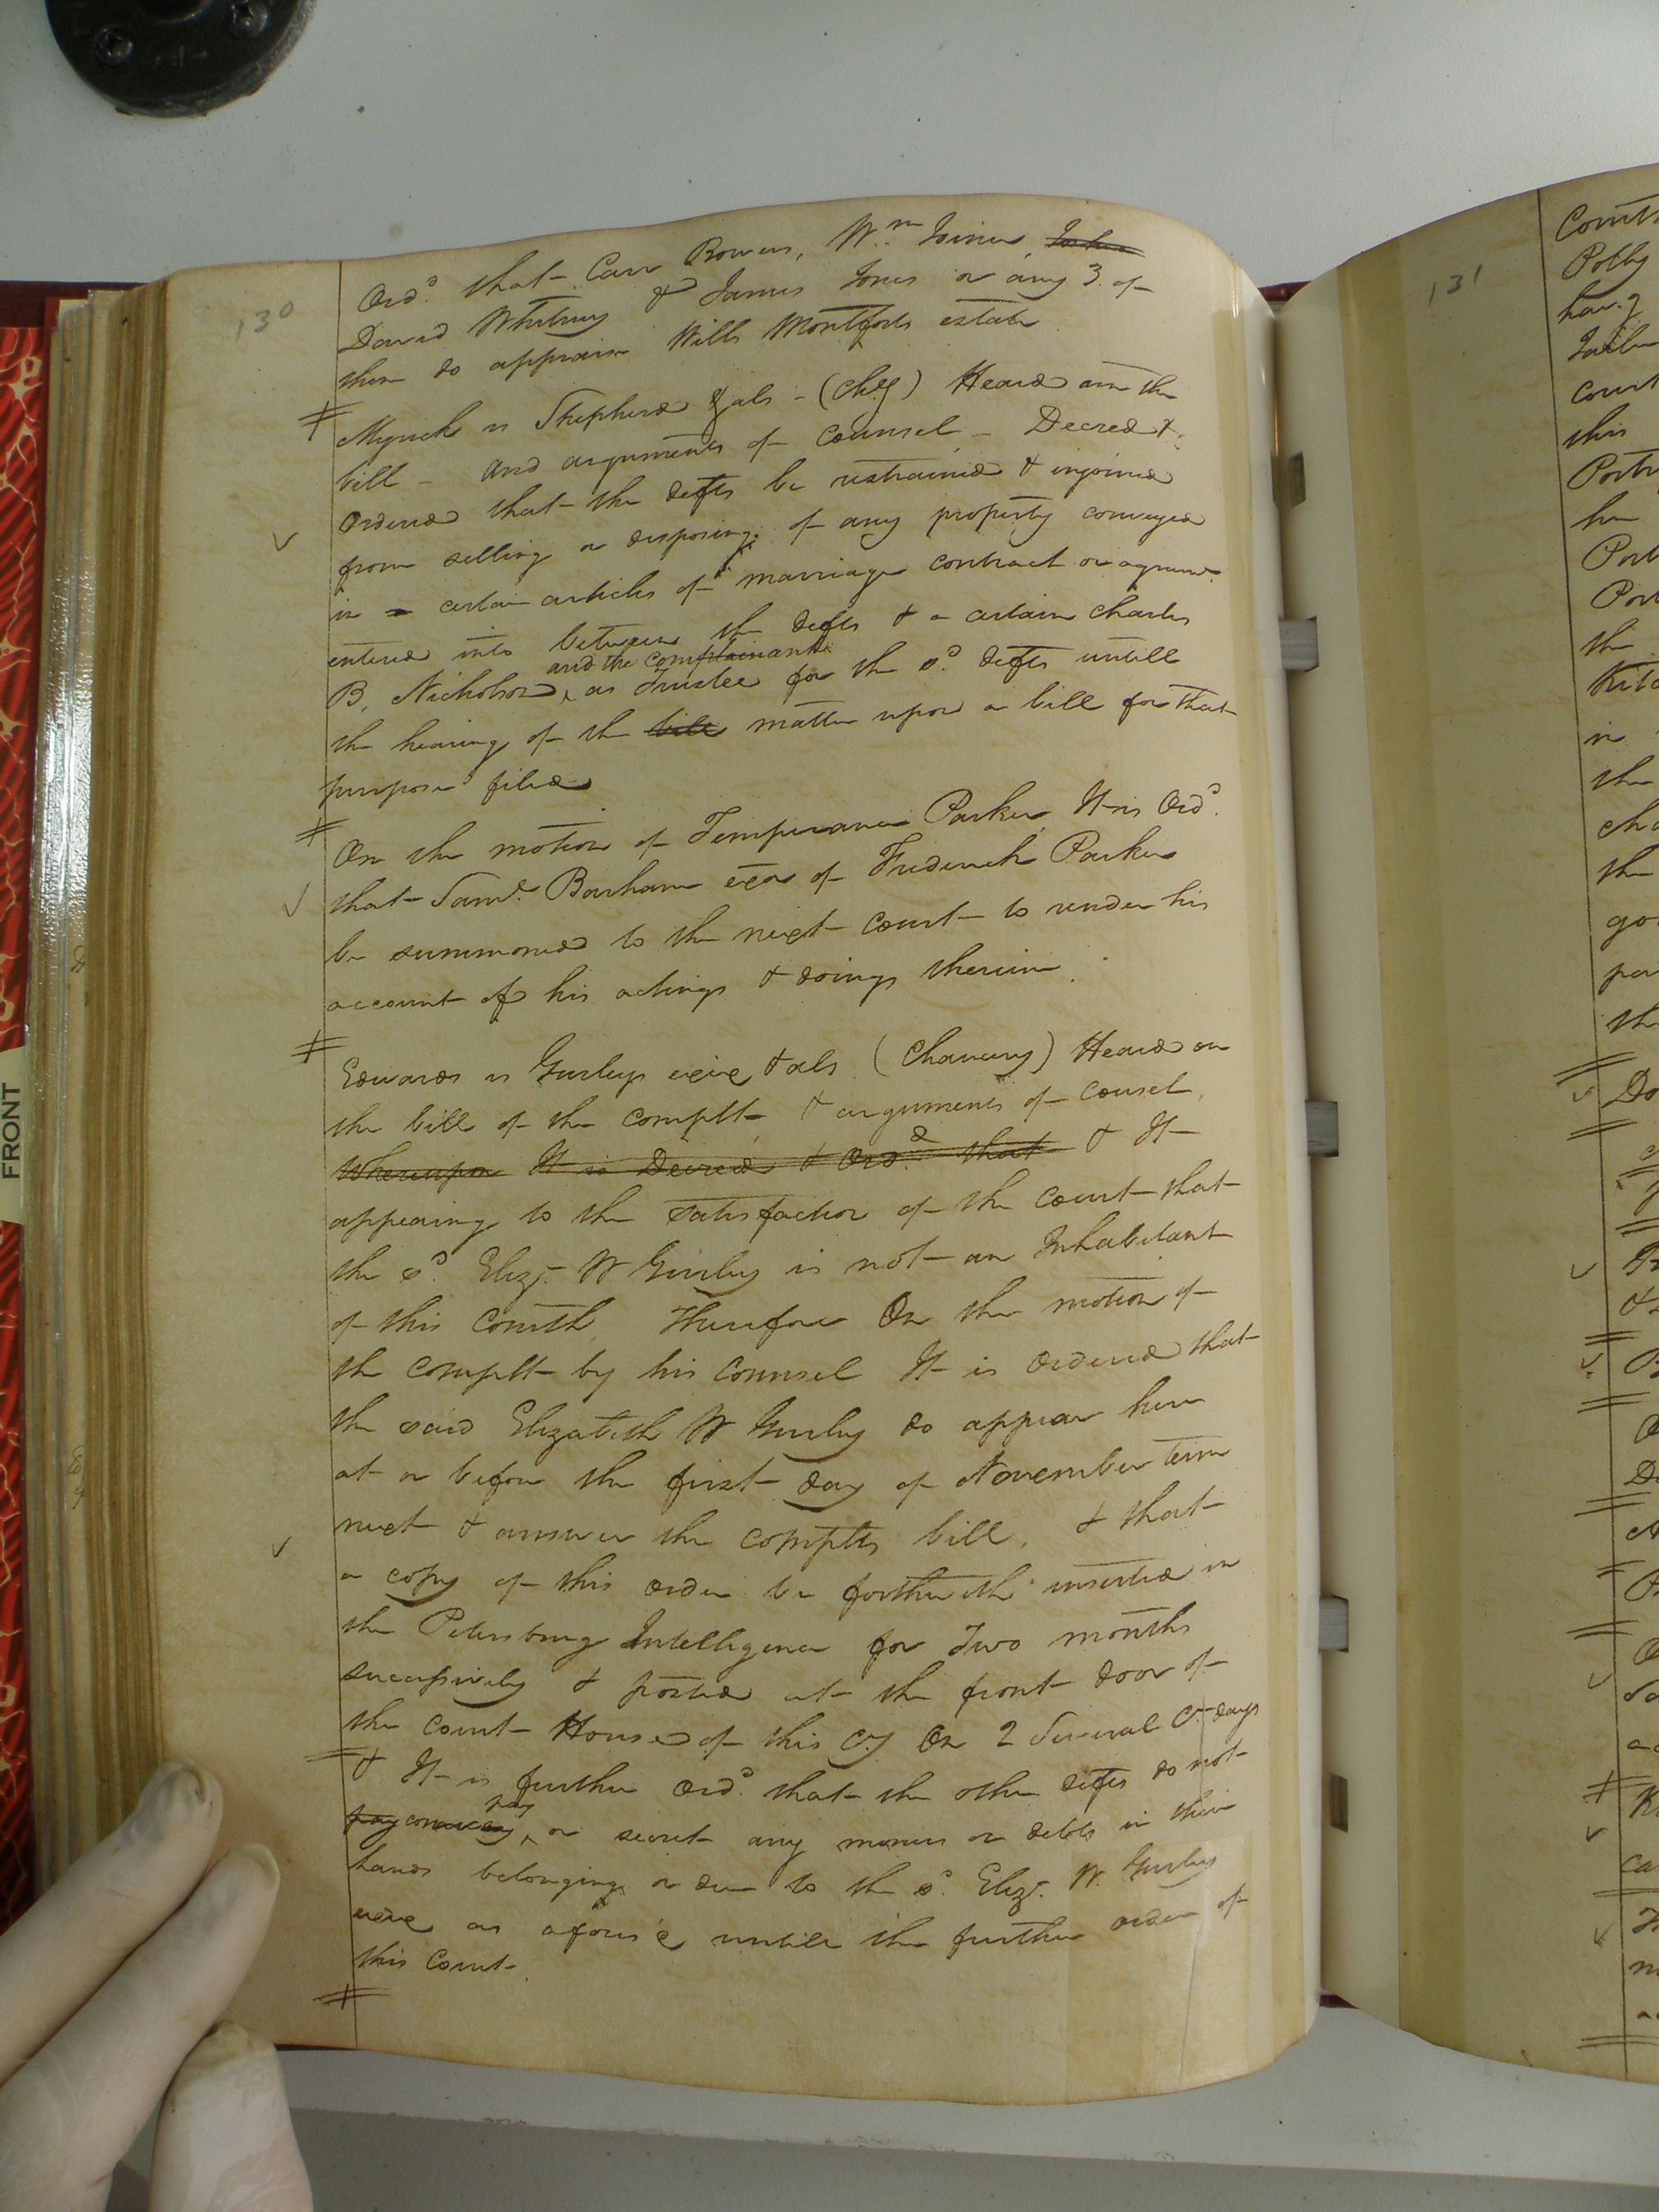 130
Ord.d that Carr Bowers, W.m Joiner,
David Whitney & James Jones or any 3 of
them do appraise Wills Montforts estate
Myrick vs Shepherd & als - (Chy) Heard on the
bill - and arguments of counsel - Decreed &
Ordered that the defts be restrained & injoined
from selling or disposing of any property conveyed
in a certain articles of marriage contract or agreemt.
entered into between the defts & a certain Charles
and the complainant
B. Nicholson, as Trustee for the sd. defts untill
the hearing of the bill matter upon a bill for that
purpose filed
On the motion of Temperance Parker It is Ord.d
that Saml. Barham exor of Frederick Parker
be summoned to the next court to render his
account of his actings & doings therein.
Edwards vs Gurleys exix & als (Chancery) Heard on
the bill of the complt & arguments of counsel,
Whereupon It is Decreed & Ord.d that & It
appearing to the satisfaction of the court that
the sd. Eliz. W Gurley is not an Inhabitant
of this Comth, Therefore On the motion of
the complt by his counsel It is Ordered that
the said Elizabeth W Gurley do appear here
at or before the first day of November term
next & answer the complts bill, & that
a copy of this order be forthwith inserted in
the Petersburg Intelligencer for Two months
successively & posted at the front door of
the Court House of this Cy On 2 Several Ct days
& It is further Ord.d that the other defts do not
pay
pay convey, or secret any monies or debts in their
hands belonging or due to the sd. Eliz. W. Gurley
exix as aforesd untill the further order of
this Court.
131
Comth
Polly
court
this
in
the
the
the
Do
FRONT